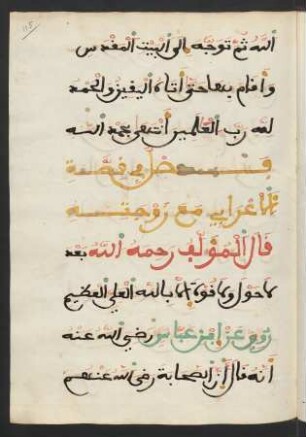 الله ثم توجه الى البيت المقدس
واقام بها حتى اتاه اليقين والحمد
لله رب العالمين انتهى بحمد الله
فصل في قصة
الاعرابي مع زوجته
قال المولف رحمه الله بعد
لا حول ولا قوة الا بالله العلي العظيم
روي عن ابن عباس رضي الله عنه
انه قال ان الصحابة رضي الله عنهم